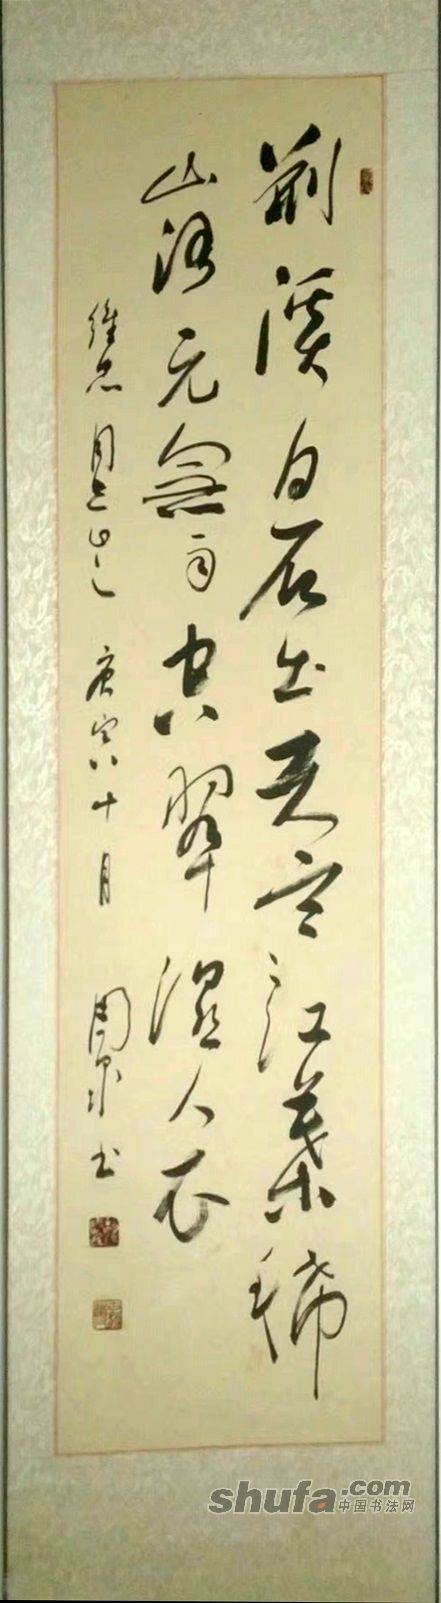 荆溪白石出天寒红葉稀
山路元無雨空翠濕人衣
庚寅十月 周 书
shufa.com
中国书法网